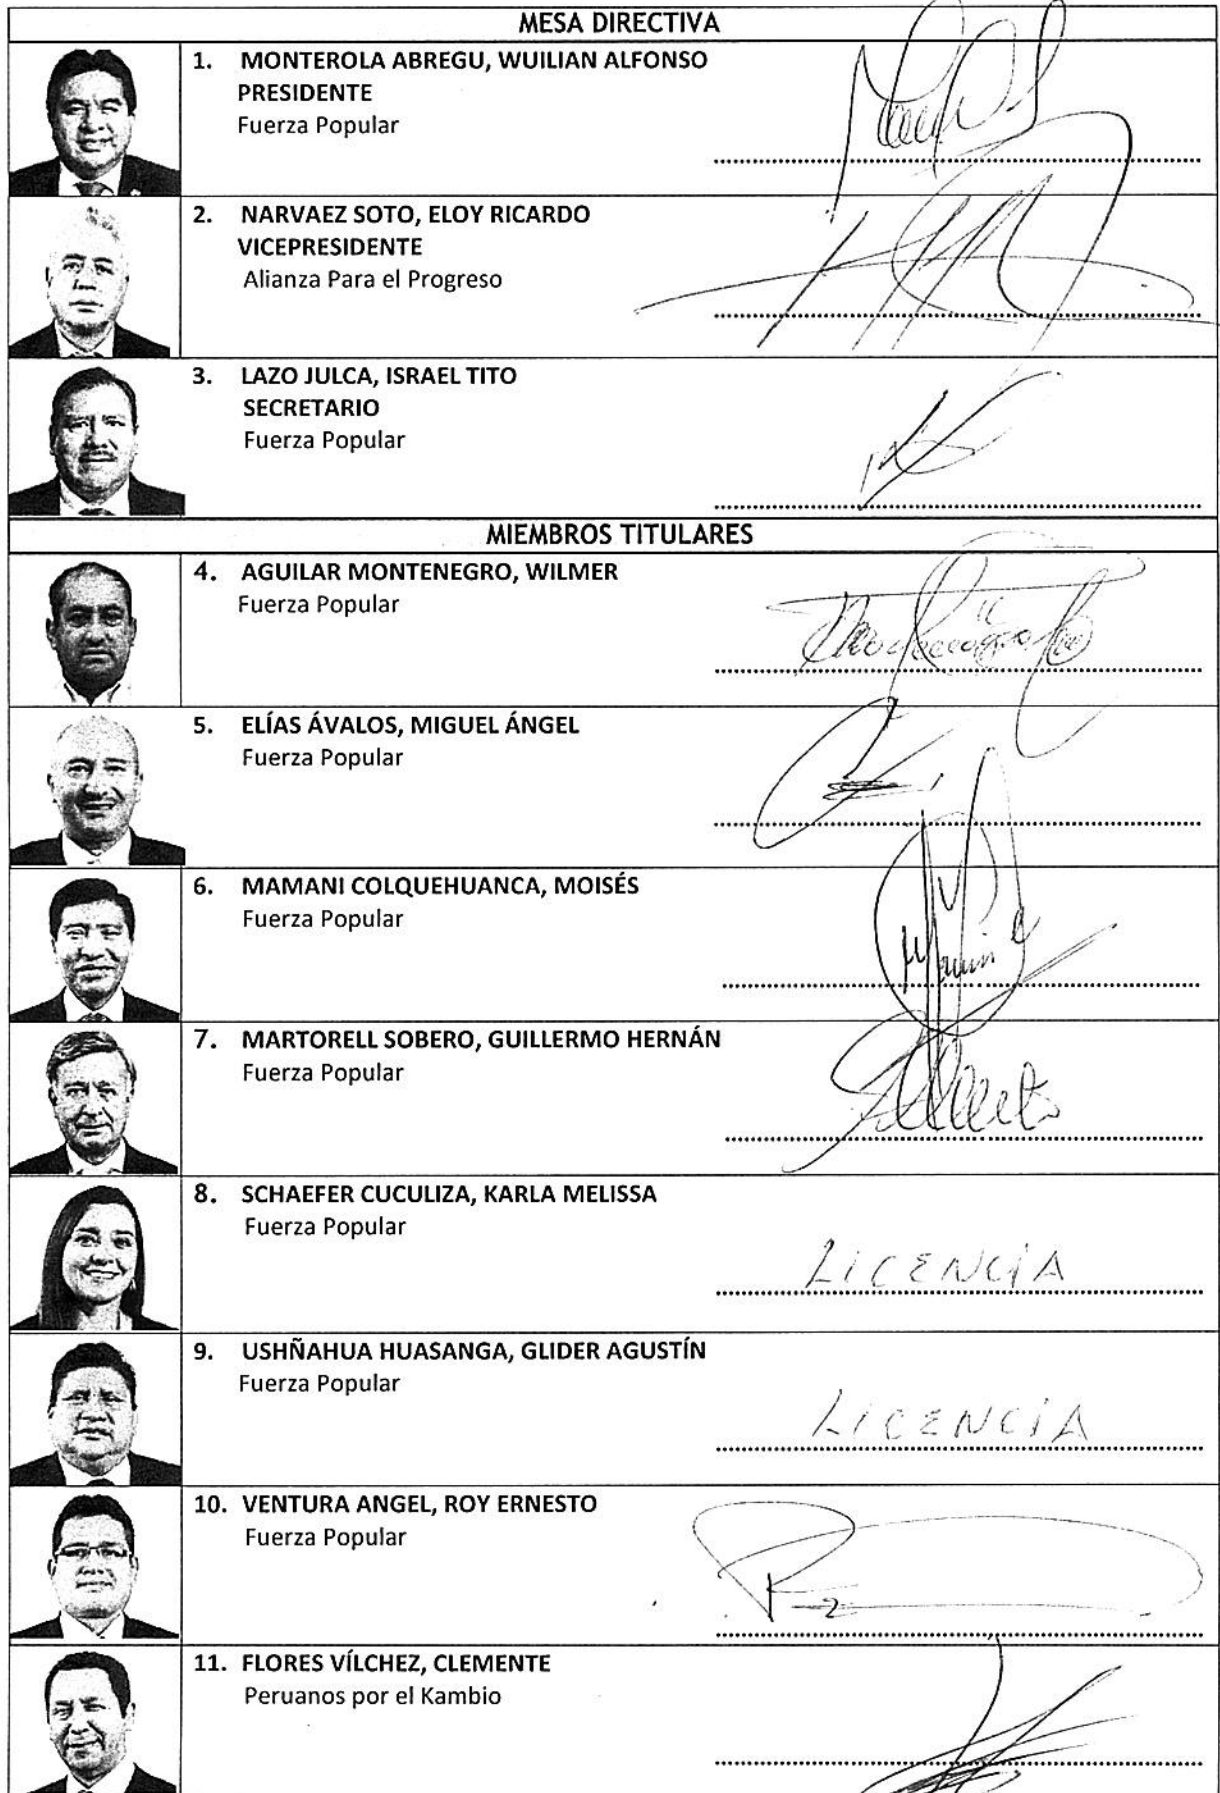 MESA DIRECTIVA
1. MONTEROLA ABREGU, WUILIAN ALFONSO
PRESIDENTE
Fuerza Popular
2. NARVAEZ SOTO, ELOY RICARDO
VICEPRESIDENTE
Alianza Para el Progreso
3. LAZO JULCA, ISRAEL TITO
SECRETARIO
Fuerza Popular
MIEMBROS TITULARES
4. AGUILAR MONTENEGRO, WILMER
Fuerza Popular
5. ELÍAS ÁVALOS, MIGUEL ÁNGEL
Fuerza Popular
6. MAMANI COLQUEHUANCA, MOISÉS
Fuerza Popular
7. MARTORELL SOBERO, GUILLERMO HERNÁN
Fuerza Popular
8. SCHAEFER CUCULIZA, KARLA MELISSA
Fuerza Popular
LICENCIA
9. USHÑAHUA HUASANGA, GLIDER AGUSTÍN
Fuerza Popular
LICENCIA
10. VENTURA ANGEL, ROY ERNESTO
Fuerza Popular
11. FLORES VÍLCHEZ, CLEMENTE
Peruanos por el Kambio